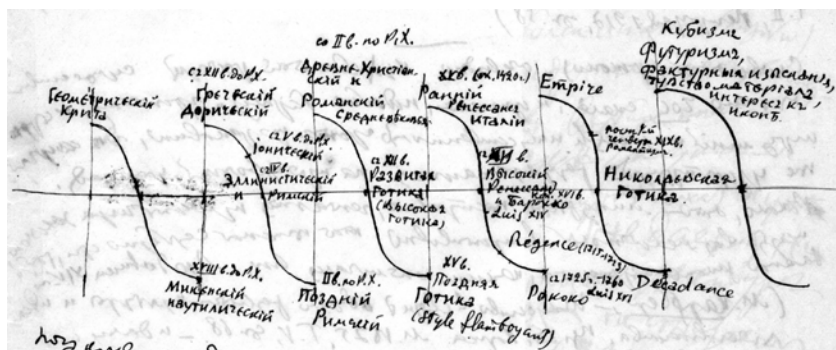 Геометрический
Крита
XVIII в. до Р.Х.
Микенский
наутилический
с XII в. до Р.Х.
Греческий
Дорический
с V в. до Р.Х.
Ионический
Эллинистический
и Римский
II в. по Р.Х.
Поздний
Римский
со II в. по Р.Х.
Древне-Христиан-
ский и
Романский
Средневековья
с XII в.
Развитая
Готика
(высокая
готика)
XV в.
Поздняя
Готика
(style flamboyant)
XV в. (ок. 1420 г.)
Ранний
Ренессанс
Италии
Высокий
Ренессанс
и Барокко
Luis XIV
Régence (1715-1723)
с 1725-1760
Рококо
Luis XVI
Empire
Николаевская
Готика
Decadance
Кубизм
Футуризм,
Фактурные
чувство материала
интерес къ
иконѣ.